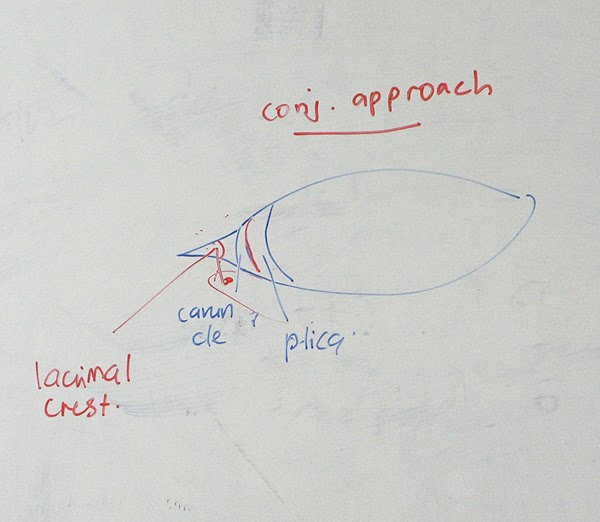 conj. approach
carun
cle
plica
lacrimal
crest.